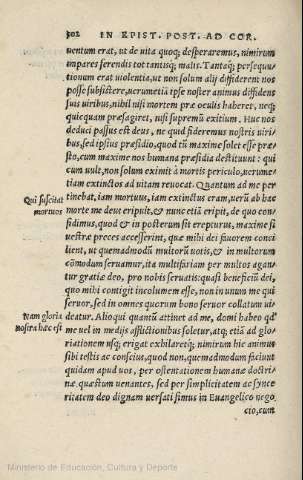 302 IN EPIST. POST. AD COR.
uentum erat, ut de uita quoq; desperaremus, nimirum
impares ferendis tot tantisq; malis. Tantaq; persequu-
tionum erat uiolentia, ut non solum alij diffiderent nos
posse subsistere, uerumetiā ipse noster animus diffidens
suis uiribus, nihil nisi mortem præ oculis haberet, neq;
quicquam præsagiret, nisi supremũ exitium. Huc nos
deduci passus est deus, ne quid fideremus nostris uiri-
bus, sed ipsius præsidio, quod tũ maxime solet esse præ-
sto, cum maxime nos humana præsidia destituunt: qui
cum uult, non solum eximit à mortis periculo, uerume-
tiam extinctos ad uitam reuocat. Quantum ad me per
Qui suscitat tinebat, iam mortuus, iam extinctus eram, uerũ ab hac
mortuos morte me deus eripuit, & nunc etiā eripit, de quo con-
fidimus, quod & in posterum sit erepturus, maxime si
uestræ preces accesserint, quæ mihi dei fauorem consi
lient, ut quemadmodũ multorũ uotis, & in multorum
cōmodum seruamur, ita multifariam per multos agan-
tur gratiæ deo, pro nobis seruatis: quasi beneficiũ dei,
quo mihi contigit incolumem esse, non in unum me qui
seruor, sed in omnes quorum bono seruor collatum ui-
Nam gloria deatur. Alioqui quantũ attinet ad me, domi habeo qđ
nostra hæc est me uel in medijs afflictionibus soletur, atq; etiā ad glo-
riationem usq; erigat exhilaretq; nimirum hic animus
sibi testis ac conscius, quod non, quemadmodum faciunt
quidam apud uos, per ostentationem humanæ doctri-
næ quæstum uenantes, sed per simplicitatem ac synce-
ritatem deo dignam uersati simus in Euangelico nego-
cio, cum
Ministerio de Educación, Cultura y Deporte